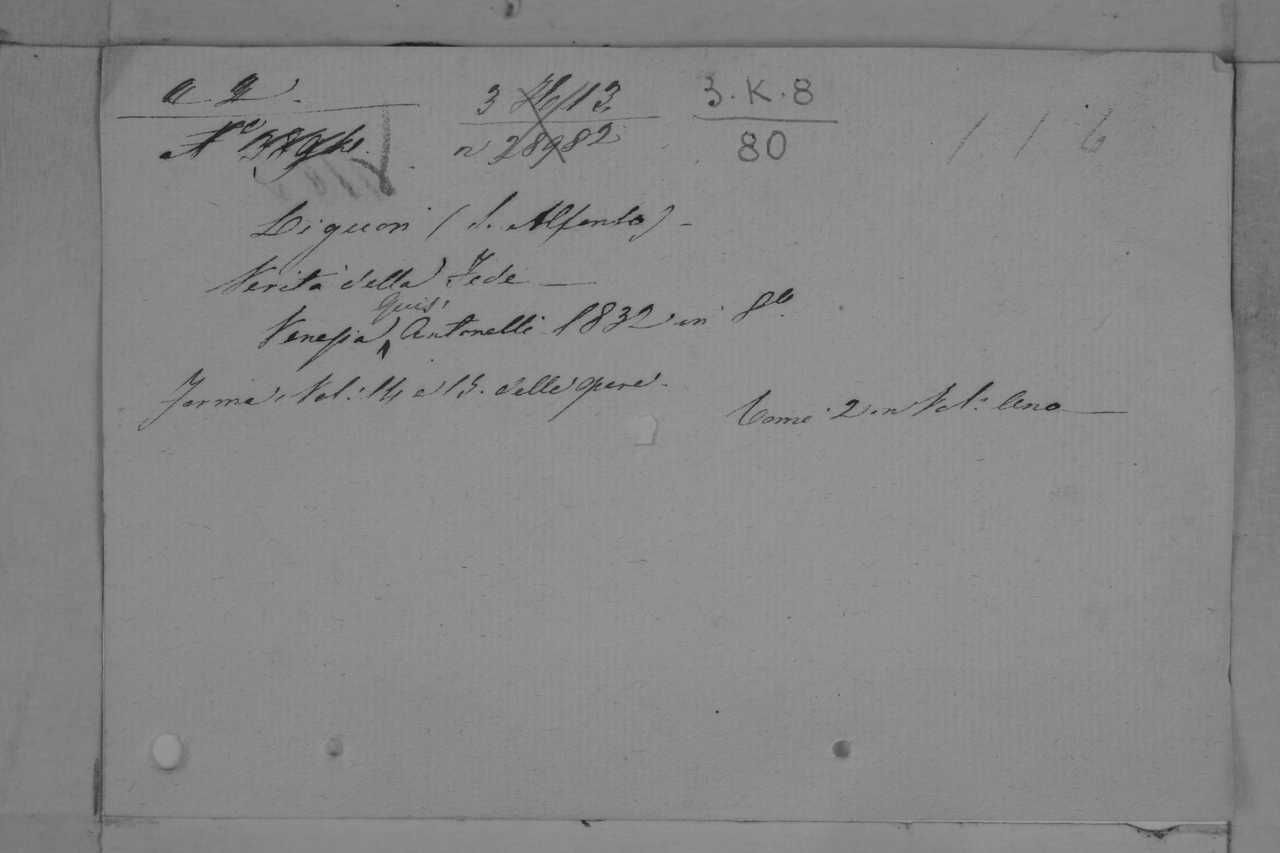 a. 2. 3 13 3.K.8
n 28982 80 1 1 6
Liguori (S. Alfonso) -
Verità della Fede —
Gius:
Venezia Antonelli 1832 in 8°
Forma Vol: 14 e 15. delle opere.
Tomi 2 in Vol: Uno —